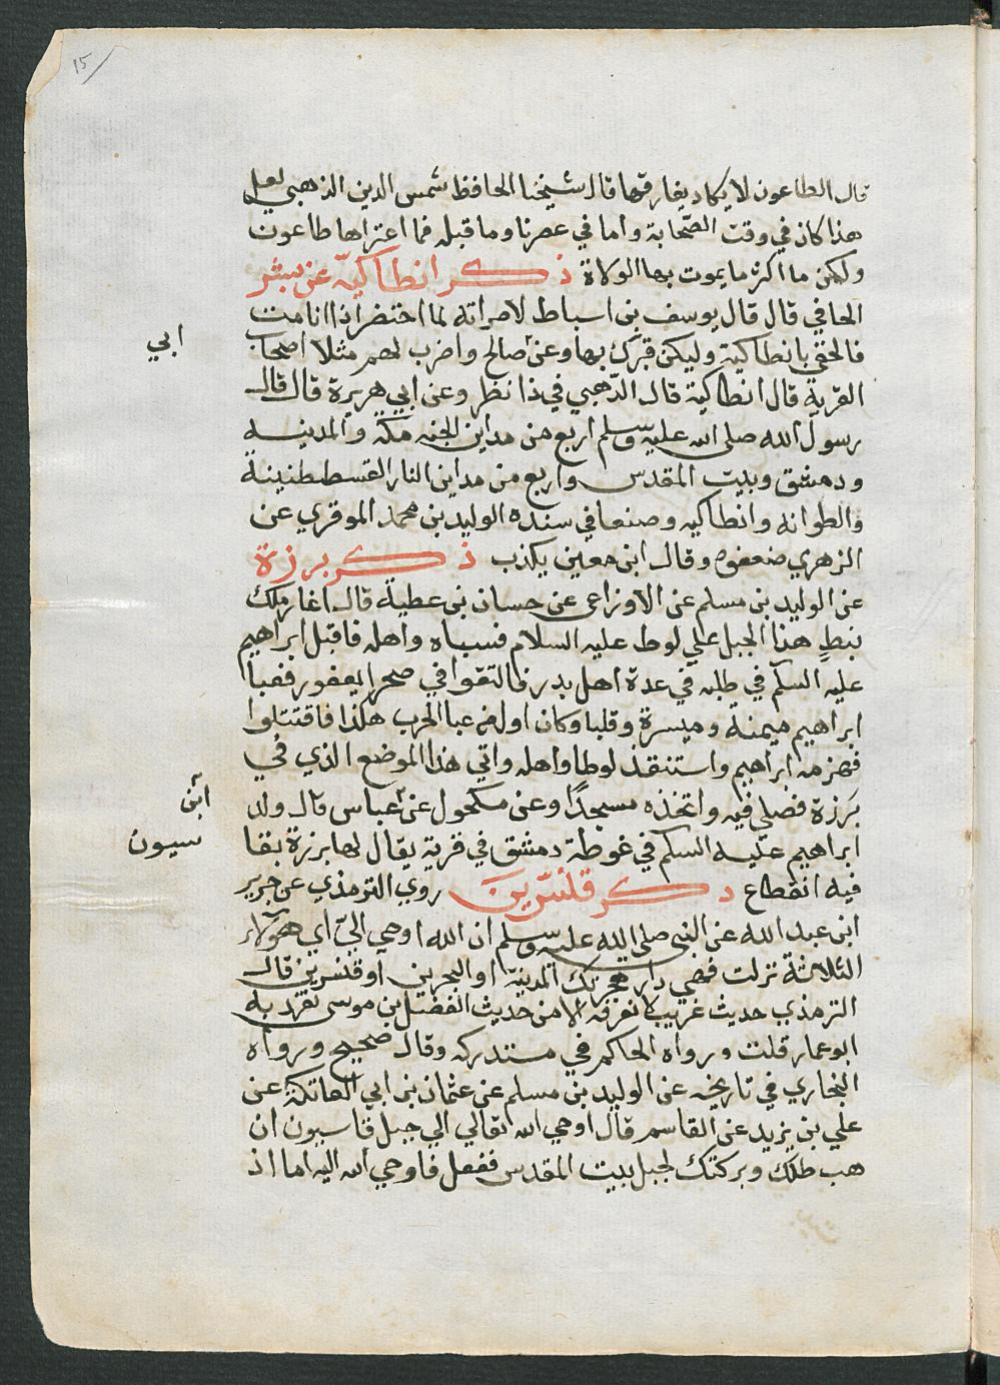 15
قال الطاعون لا يكاد يفارقها قال شيخنا الحافظ شمس الدين الذهبي لعل
هذا كان في وقت الصّحابة واما في عصرنا وما قبله فما اعتراها طاعون
ولكن ما اكثر ما يموت بها الولاة ذكر انطاكيّة عن بشر
الحافي قال قال يوسف بن اسباط لامراته لما احتضر اذا انا مت
فالحقي بانطاكية وليكن قبرك بها وعن صالح واضرب لهم مثلا اصحاب
ابي
القرية قال انطاكية قال الذهبي في ذا نظر وعن ابي هريرة قال قال
رسول الله صلى الله عليه وسلم اربع من مداين الجنه مكة والمدينه
ودمشق وبيت المقدس واربع من مداين النار القسطنطنينة
والطوانه وانطاكيه وصنعا في سنده الوليد بن محمد الموقري عن
الزهري ضعفوه وقال ابن معين يكذب ذكر برزة
عن الوليد بن مسلم عن الاوزاعي عن حسان بن عطية قال اغار ملك
نبطٍ هذا الجبل علي لوط عليه السلام فسباه واهله فاقبل ابراهيم
عليه السلم في طلبه في عدة اهل بدر فالتقوا في صحرا يعفور فعبا
ابراهيم ميمنة وميسرة وقلبا وكان اول من عبا الحرب هكذا فاقتتلوا
فهزمه ابراهيم واستنقذ لوطا واهله واتي هذا الموضع الذي في
برزة فصلي فيه واتخذه مسجدًا وعن مكحول عن عباس قال ولد
ابن
ابراهيم عليه السلم في غوطة دمشق في قرية يقال لها برزة بقا
سيون
فيه انقطاع ذكر قنسرين روي الترمذي عن جرير
ابن عبد الله عن النبي صلى الله عليه وسلم ان الله اوحي اليّ اي هولاء
الثلاثة نزلت فهي دار هجرتك المدينة او البحرين او قنسرين قال
الترمذي حديث غريب لا نعرفه الا من حديث الفضل بن موسى تفرد به
ابو عمار قلت ورواه الحاكم في مستدركه وقال صحيح ورواه
البخاري في تاريخه عن الوليد بن مسلم عن عثمان بن ابي العاتكة عن
علي بن يزيد عن القاسم قال اوحي الله تعالي الي جبل قاسيون ان
هب ظلك وبركتك لجبل بيت المقدس ففعل فاوحي الله اليه اما اذ